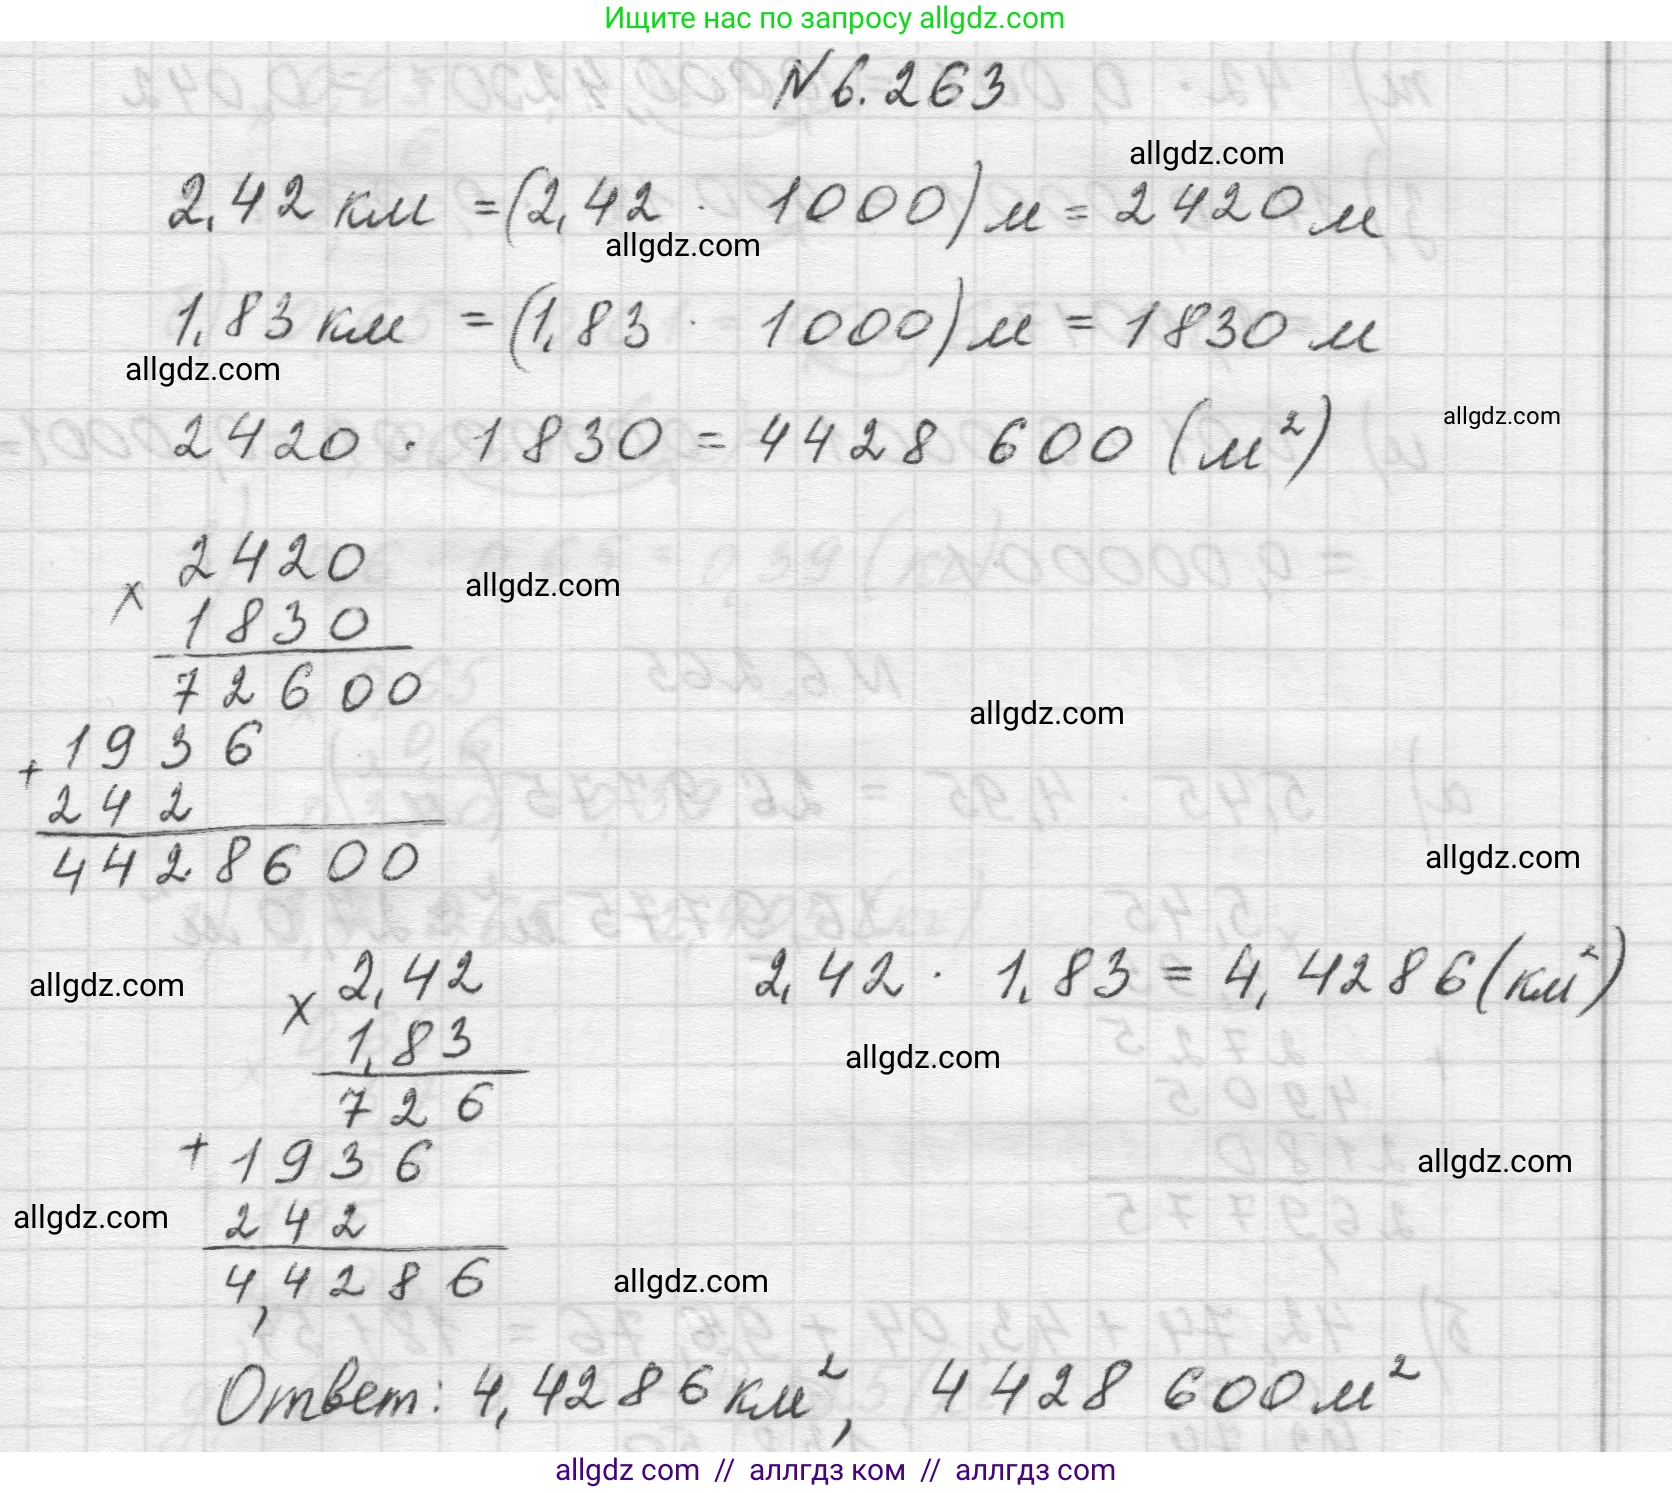 Ищите нас по запросу allgdz.com
N 6.263
allgdz.com
2,42 км = (2,42 · 1000) м = 2420 м
allgdz.com
1,83 км = (1,83 · 1000) м = 1830 м
allgdz.com
allgdz.com
2420 · 1830 = 4428 600 (м²)
2420
allgdz.com
×
1830
72600
allgdz.com
1936
+
242
4428600
allgdz.com
2,42
2,42 · 1,83 = 4,4286 (км²)
allgdz.com
×
1,83
allgdz.com
726
+ 1936
allgdz.com
allgdz.com
242
4,4286
allgdz.com
Ответ: 4,4286 км², 4428 600 м²
allgdz com // аллгдз ком // аллгдз com